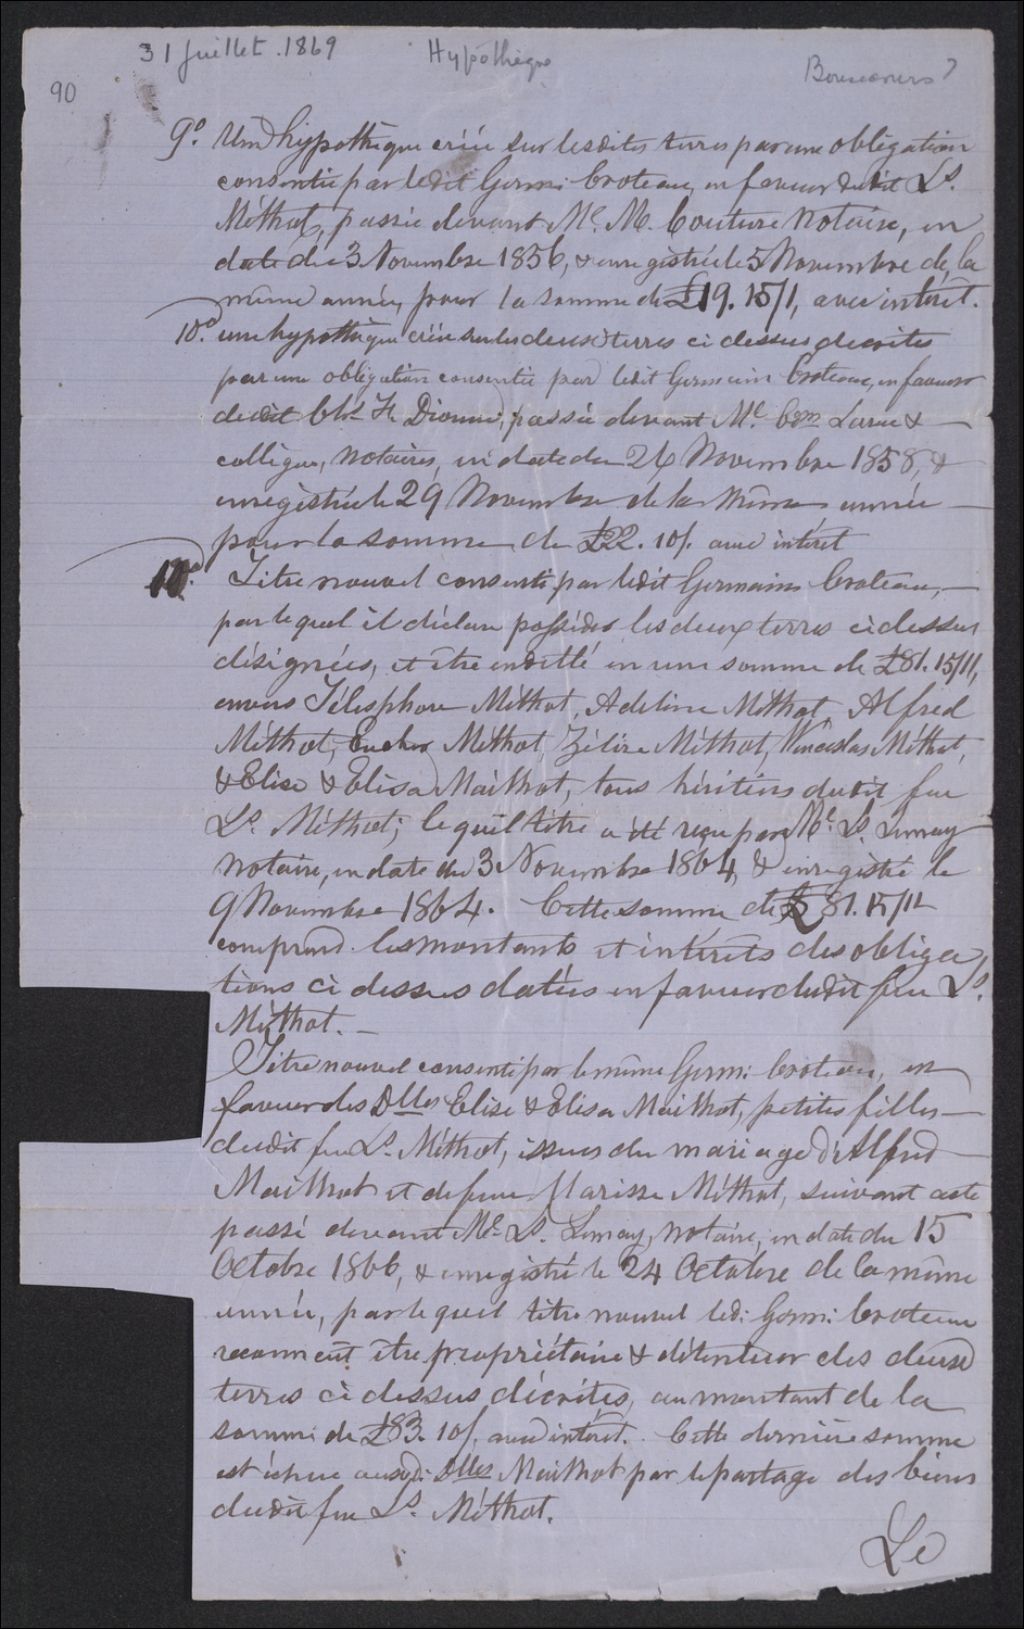 31 Juillet . 1869 Hypothèque
90
9º. Une hypothèque créée sur lesdites terres par une obligation
consentie par ledit Germ: Croteau, en faveur dudit Ls.
Méthot, passée devant Me. M. Couture Notaire, en
date du 3 Novembre 1856, & enregistrée le 5 Novembre de la
même année, pour la somme de £19. 15/1, avec intérêt.
10º. une hypothèque créée sur les deux terres ci dessus décrites
par une obligation consentie par ledit Germain Croteau, en faveur
dudit Chs F. Dionne, passée devant Me. Larue &
collègue, Notaires, en date du 24 Novembre 1858, &
enregistrée le 29 Novembre de la même année
pour la somme de £22. 10/. avec intérêt
Titre nouvel consenti par ledit Germain Croteau,
par lequel il déclare posséder les deux terres ci dessus
désignées, et être endetté en une somme de £81. 15/11,
envers Télesphore Méthot, Adeline Méthot, Alfred
Méthot, Eucher Méthot, Zélire Méthot, Winceslas Méthot,
& Elise & Elisa Mailhot, tous héritiers dudit feu
Ls. Méthot; lequel titre a été reçu par Me. Ls. Lemay
notaire, en date du 3 Novembre 1864, & enregistré le
9 Novembre 1864. Cette somme de £81. 15/11
comprend les montants et intérêts des obliga
tions ci dessus datées en faveur dudit feu Ls.
Méthot. _
Titre nouvel consenti par le même Germ: Croteau, en
faveur des Dlles Elise & Elisa Mailhot, petites filles
dudit feu Ls. Méthot, issues du mariage d'Alfred
Mailhot et de feue Marisse Méthot, suivant acte
passé devant Me. Ls. Lemay, Notaire, en date du 15
Octobre 1866, & enregistré le 24 Octobre de la même
année, par lequel titre nouvel ledi: Germ: Croteau
reconnait être propriétaire & détenteur des deux
terres ci dessus décrites, au montant de la
somme de £83. 10/, avec intérêt. Cette dernière somme
est échue auxdi: Dlles Mailhot par le partage des biens
dudit feu Ls. Méthot.
Le